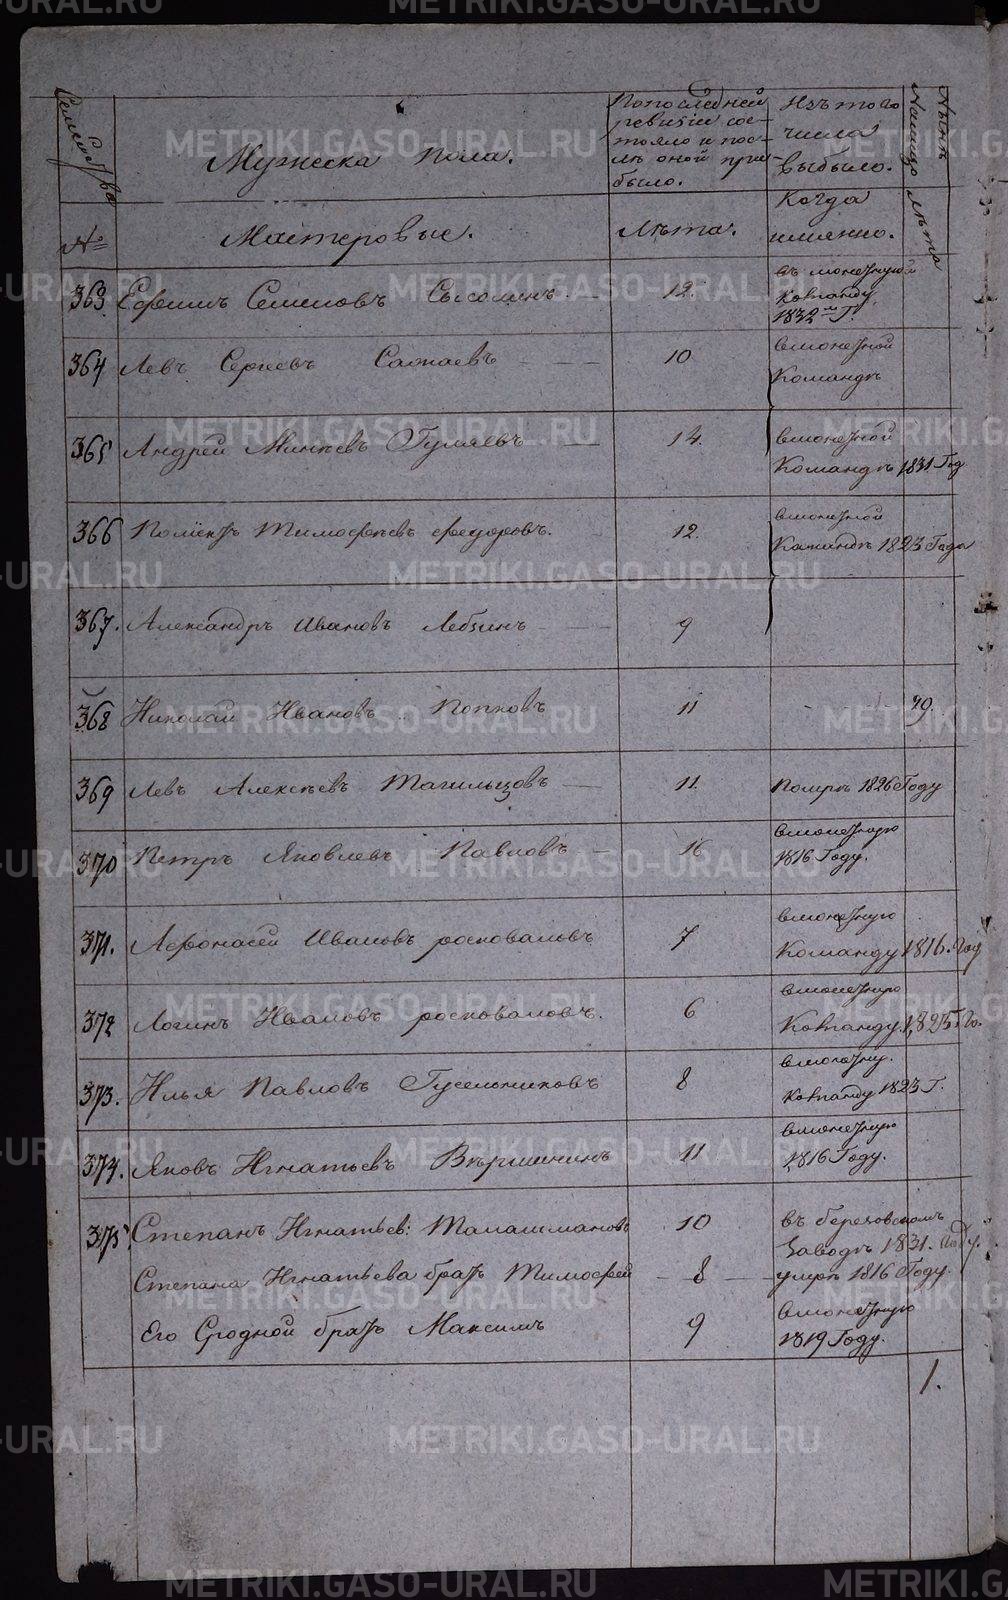 METRIKI.GASO-URAL.RU
Мужеска пола.
По последней
ревизіи сос-
тояло и пос-
лѣ оной при-
было.
Изъ того
числа
выбыло.
№
Мастеровые.
Лѣта.
Когда
именно.
Нынѣ
на лицо
лѣта
363. Ефимъ Семеновъ 12.
въ монетную
команду
1832 Г.
364 Левъ Сергеевъ 10
вмонетной
Командѣ
365 Андрей Минѣевъ Гуляевъ 14.
вмонетной
Командѣ 1831 Год
366 Тимофѣевъ Федоровъ. 12.
вмонетной
Командѣ 1823 Года
367. Александръ Ивановъ Лебзинъ 9
368 Николай Ивановъ Попковъ 11 29
369 Левъ Алексѣевъ Тагильцовъ 11. Помре 1826 Году
370 Петръ Яковлевъ Павловъ 16
вмонетную
1816 Году.
371. Афонасей Ивановъ росковаловъ 7
вмонетную
Команду 1816. Год
372 Логинъ Ивановъ росковаловъ. 6
вмонетную
Команду 1825 Го.
373. Илья Павловъ Гусельниковъ 8
вмонетну.
Команду 1823 Г.
374. Яковъ Игнатьевъ Вѣршининъ 11
вмонетную
1816 Году.
375 Степанъ Игнатьев: Талашмановъ 10
въ березовскомъ
Заводѣ 1831. Году.
Степана Игнатьева братъ Тимофей 8 умре 1816 Году
Его Сродной братъ Максимъ 9
вмонетную
1819 Году.
1.